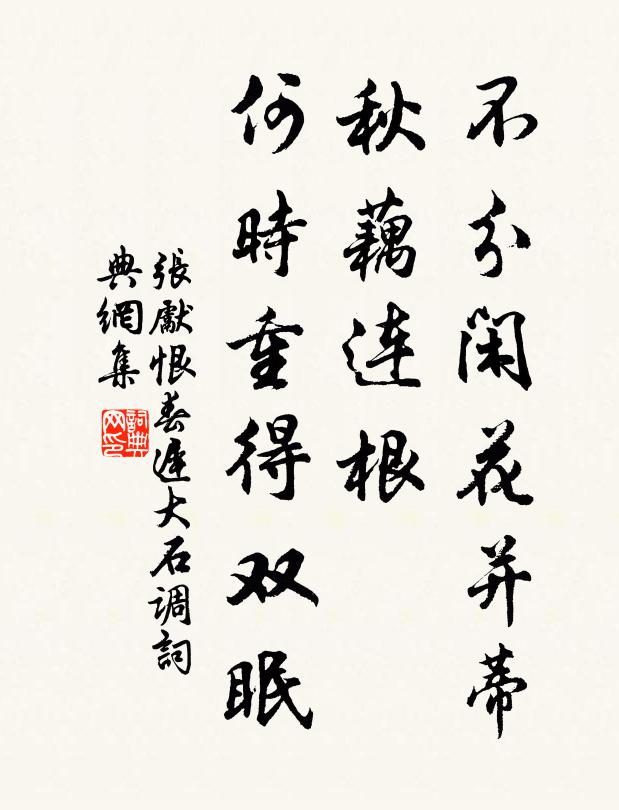 不分閑花并蒂
秋藕连根
何時重得双眠
張獻恨春遲大石调詞
典網集
詞典
网印